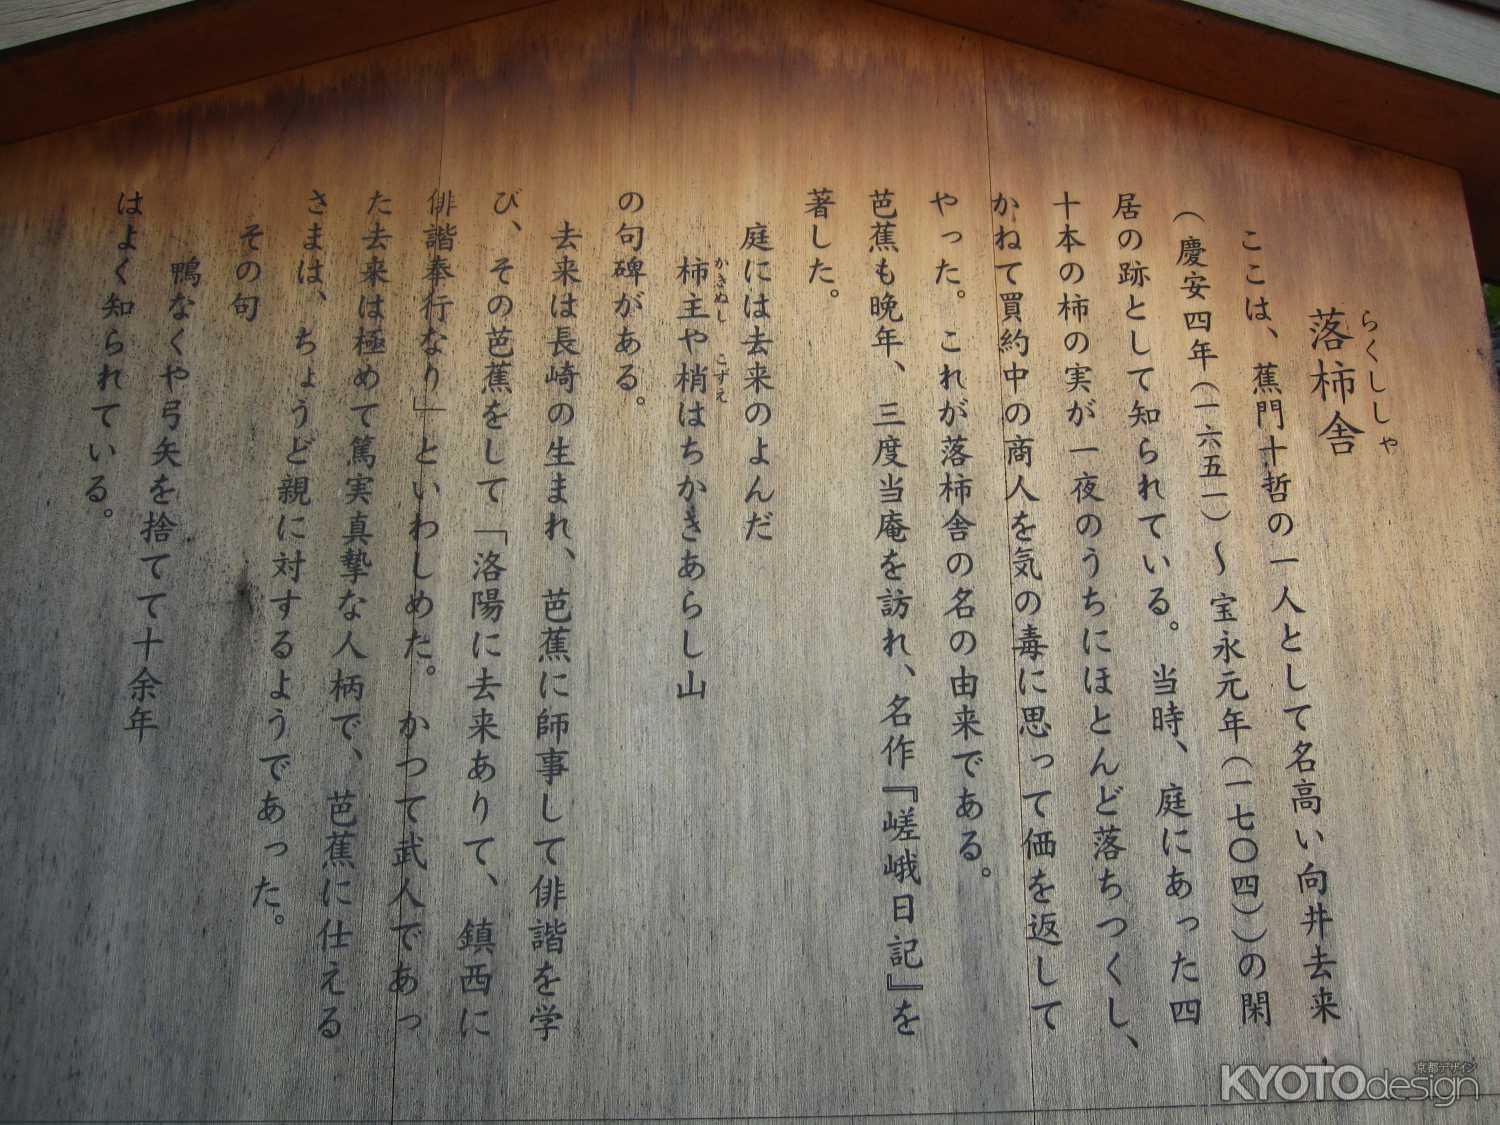 らくししゃ
落柿舎
ここは、蕉門十哲の一人として名高い向井去来
（慶安四年（一六五一）～宝永元年（一七〇四））の閑
居の跡として知られている。当時、庭にあった四
十本の柿の実が一夜のうちにほとんど落ちつくし、
かねて買約中の商人を気の毒に思って価を返して
やった。これが落柿舎の名の由来である。
芭蕉も晩年、三度当庵を訪れ、名作『嵯峨日記』を
著した。
庭には去来のよんだ
かきぬし こずえ
柿主や梢はちかきあらし山
の句碑がある。
去来は長崎の生まれ、芭蕉に師事して俳諧を学
び、その芭蕉をして「洛陽に去来ありて、鎮西に
俳諧奉行なり」といわしめた。かつて武人であっ
た去来は極めて篤実真摯な人柄で、芭蕉に仕える
さまは、ちょうど親に対するようであった。
その句
鴨なくや弓矢を捨てて十余年
はよく知られている。
KYOTOdesign
京都デザイン